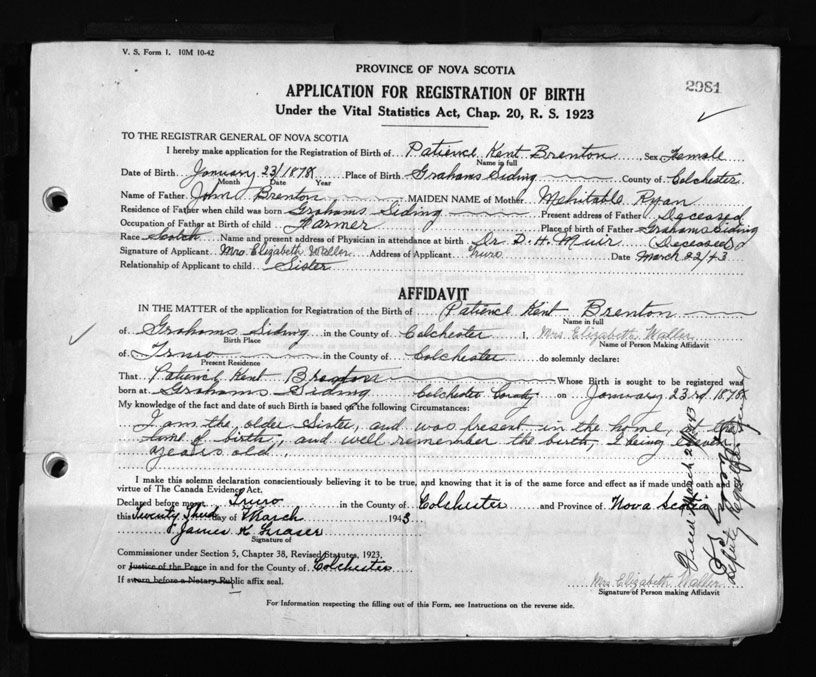 V. S. Form 1. 10M 10-42
PROVINCE OF NOVA SCOTIA
2981
APPLICATION FOR REGISTRATION OF BIRTH
Under the Vital Statistics Act, Chap. 20, R. S. 1923
TO THE REGISTRAR GENERAL OF NOVA SCOTIA
I hereby make application for the Registration of Birth of Patience Kent Brenton, Sex Female
Name in full
Date of Birth January 23/1878 Place of Birth Grahams Siding County of Colchester
Month Date Year
Name of Father John Brenton MAIDEN NAME of Mother Mehitable Ryan
Residence of Father when child was born Grahams Siding Present address of Father Deceased
Occupation of Father at Birth of child Farmer Place of birth of Father Grahams Siding
Race Scotch Name and present address of Physician in attendance at birth Dr. D. H. Muir (Deceased)
Signature of Applicant Mrs. Elizabeth Waller Address of Applicant Truro Date March 22/43
Relationship of Applicant to child Sister
AFFIDAVIT
IN THE MATTER of the application for Registration of the Birth of Patience Kent Brenton
Name in full
of Grahams Siding in the County of Colchester I, Mrs Elizabeth Waller
Birth Place Name of Person Making Affidavit
of Truro in the County of Colchester do solemnly declare:
Present Residence
That Patience Kent Brenton Whose Birth is sought to be registered was
born at Grahams Siding Colchester County on January 23rd 1878
My knowledge of the fact and date of such Birth is based on the following Circumstances:
I am the older Sister, and was present in the home, at the
time of birth, and well remember the birth, I being eleven
years old.
I make this solemn declaration conscientiously believing it to be true, and knowing that it is of the same force and effect as if made under oath and
virtue of The Canada Evidence Act.
Declared before me at Truro in the County of Colchester and Province of Nova Scotia
this Twenty Third day of March 1943
James K. Fraser
Signature of
Commissioner under Section 5, Chapter 38, Revised Statutes, 1923.
or Justice of the Peace in and for the County of Colchester
If sworn before a Notary Public affix seal.
Mrs Elizabeth Waller
Signature of Person making Affidavit
For Information respecting the filling out of this Form, see Instructions on the reverse side.
Deputy Registrar General